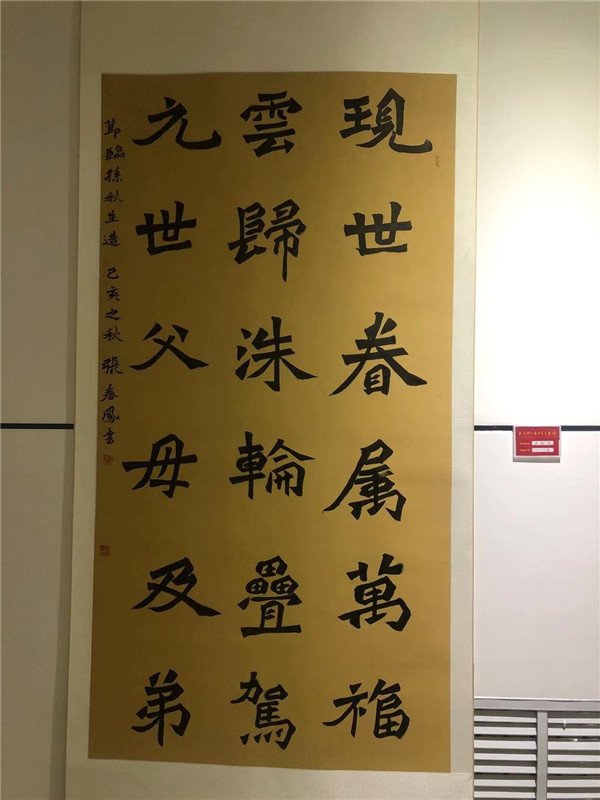 現世眷属萬福
雲歸洙輪疊駕
元世父母及弟
節臨孫秋生造 己亥之秋 張春鳳書